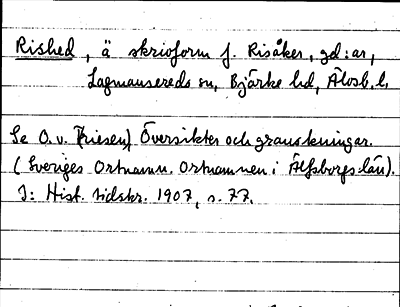 Rished, ä skrivform f. Risåker, gd:ar,
Lagmansereds sn, Bjärke hd, Älvsb. l.
Se O. v. Friesen, Översikter och granskningar.
(Sveriges Ortnamn. Ortnamnen i Älfsborgs län).
I: Hist. tidskr. 1907, s. 77.